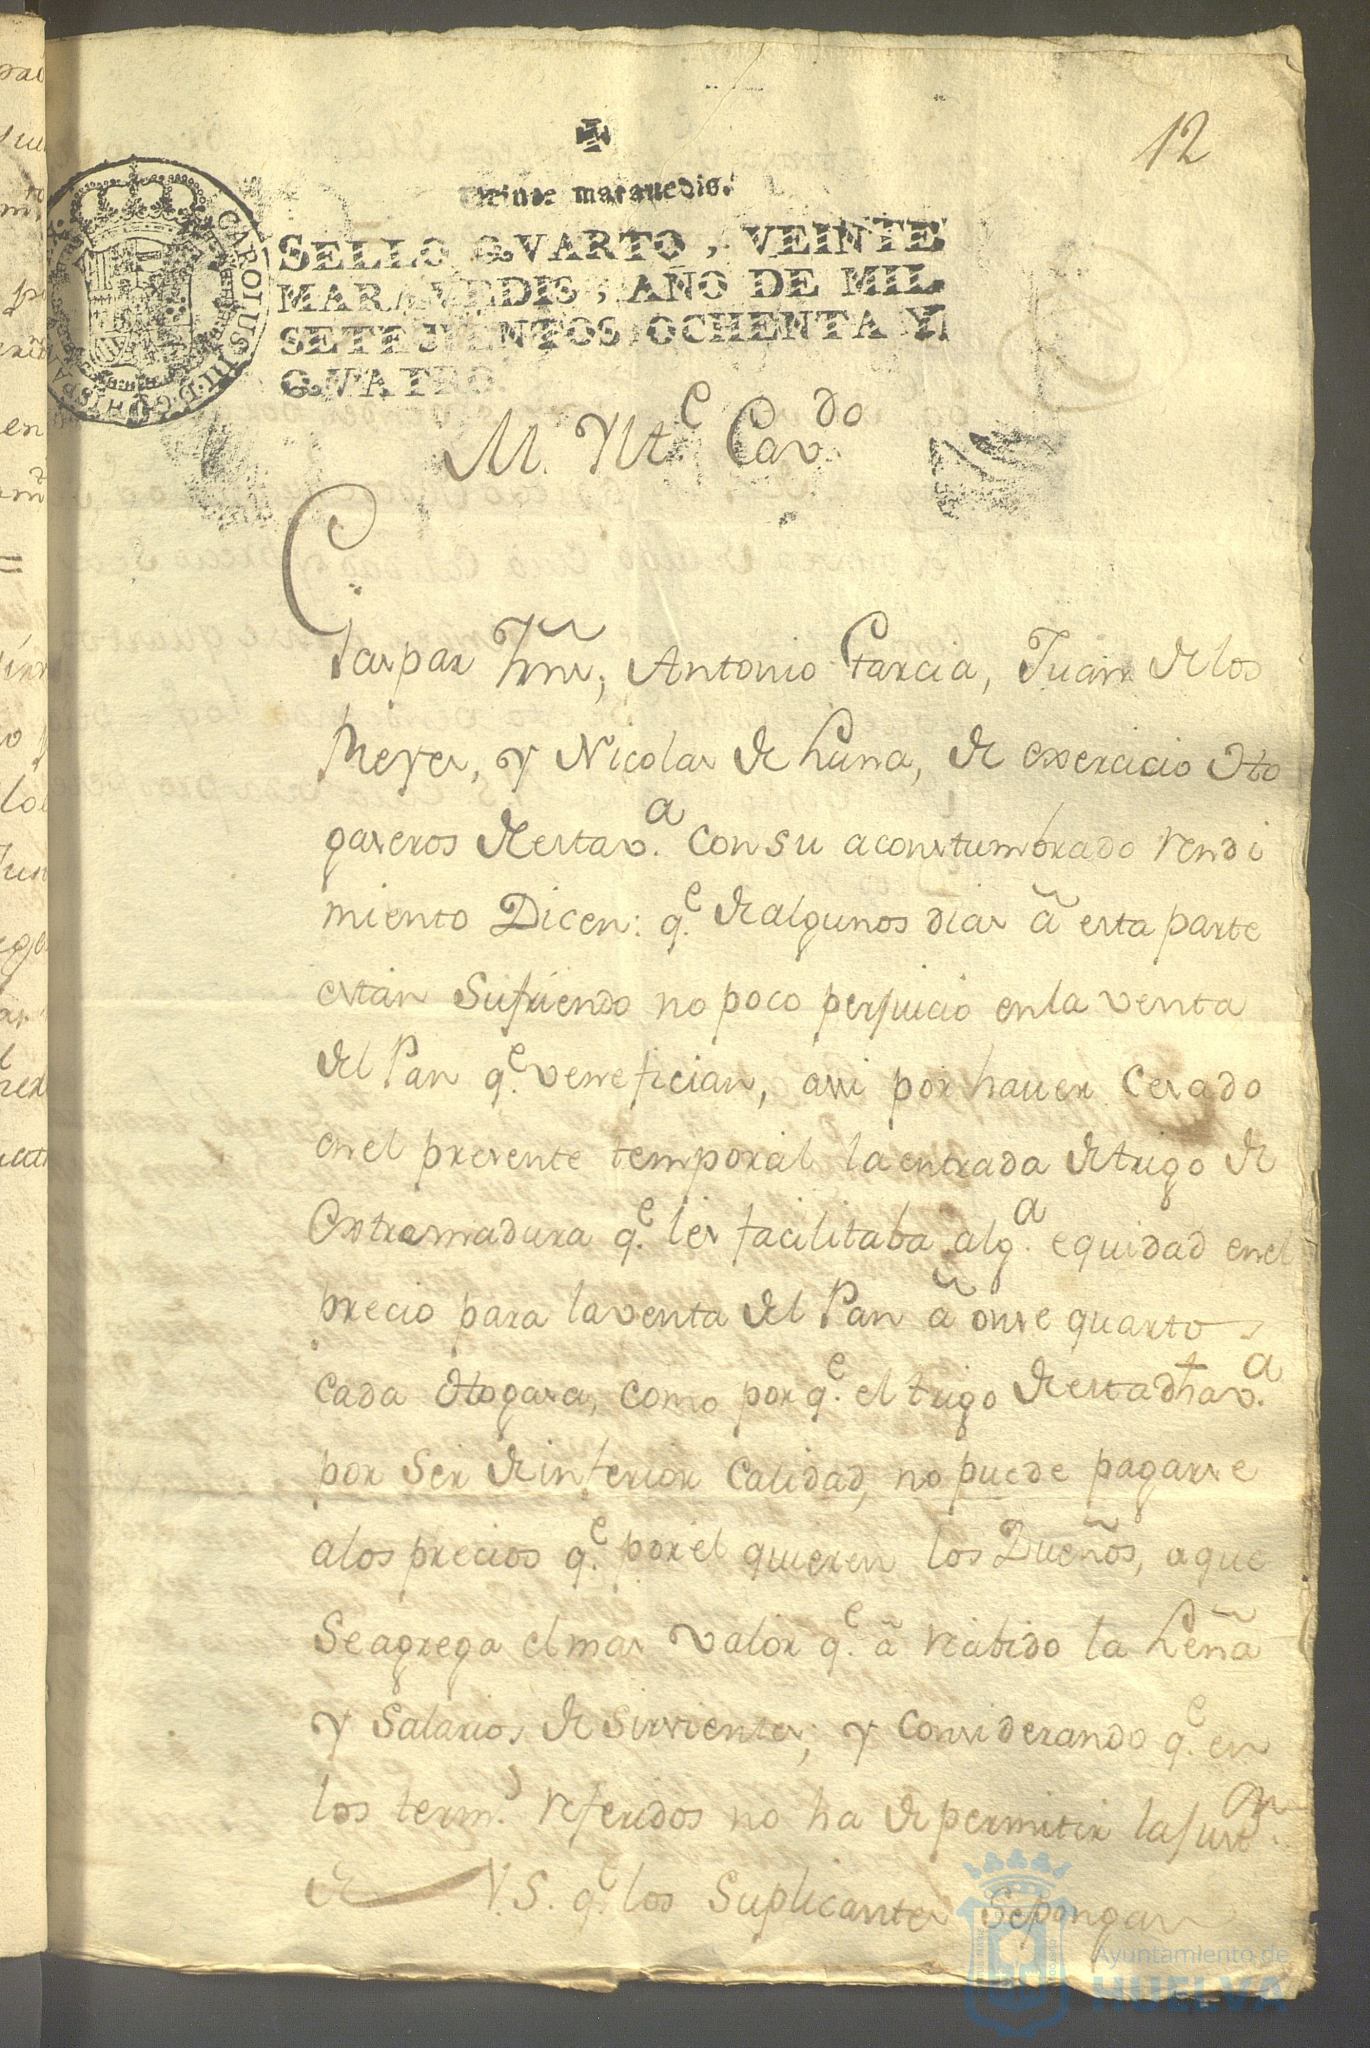 12
Veinte maravedis.
SELLO QVARTO, VEINTE
MARAVEDIS, AÑO DE MIL
SETECIENTOS OCHENTA Y
QVATRO.
CAROLUS III D G HISP
M. Ylt.e Cav.do
Gaspar Xmz, Antonio Garcia, Juan de los
Reyes, y Nicolas de Luna, de exercicio Ho
gaseros de esta v.a con su acostumbrado rendi
miento Dicen: q.e de algunos dias â esta parte
estàn Sufriendo no poco perjuicio en la venta
del Pan q.e venefician, assi por haver Cesado
en el presente temporal la entrada de trigo de
Extremadura q.e les facilitaba alg.a equidad en el
precio para la venta del Pan â onse quartos
cada Hogasa, como por q.e el trigo de esta dha v.a
por Ser de inferior Calidad, no puede pagarse
a los precios q.e por el quieren los Dueños, a que
Se agrega el mas valor q.e â recibido la Leña
y Salarios de Sirvientes; y Considerando q.e en
los term.s referidos no ha de permitir la just.n
de V.S. q.e los Suplicantes Se pongan
Ayuntamiento de
HUELVA